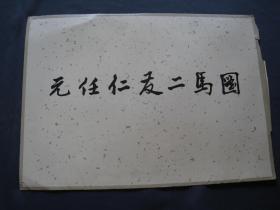 元任仁发二馬圖